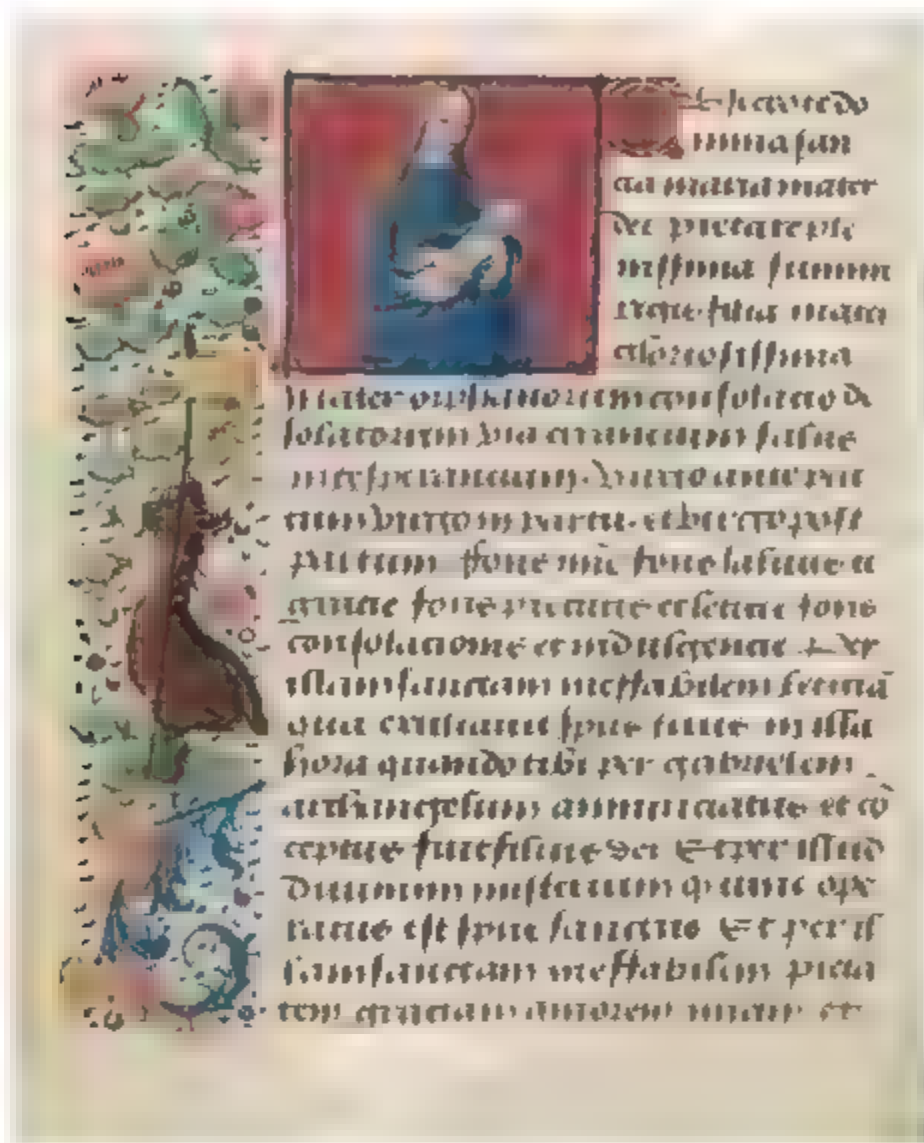 Et te rogo do
mina san
cta maria mater
dei pietate ple
nissima summi
regis filia mater
gloriosissima
mater orphanorum consolacio de
solatorum via errancium salus
in te sperancium. Virgo ante par
tum virgo in partu. et virgo post
partum fons mie fons salutis et
gracie fons pietatis et leticie fons
consolacionis et indulgencie Per
illam sanctam ineffabilem leticiā
qua exultauit spūs tuus in illa
hora quando tibi per gabrielem
archangelum annunciatus et cō
ceptus fuit filius dei Et per illud
diuinum misterium quod tunc ope
ratus est spūs sanctus Et per il
lam sanctam ineffabilem pieta
tem graciam amorem miām et